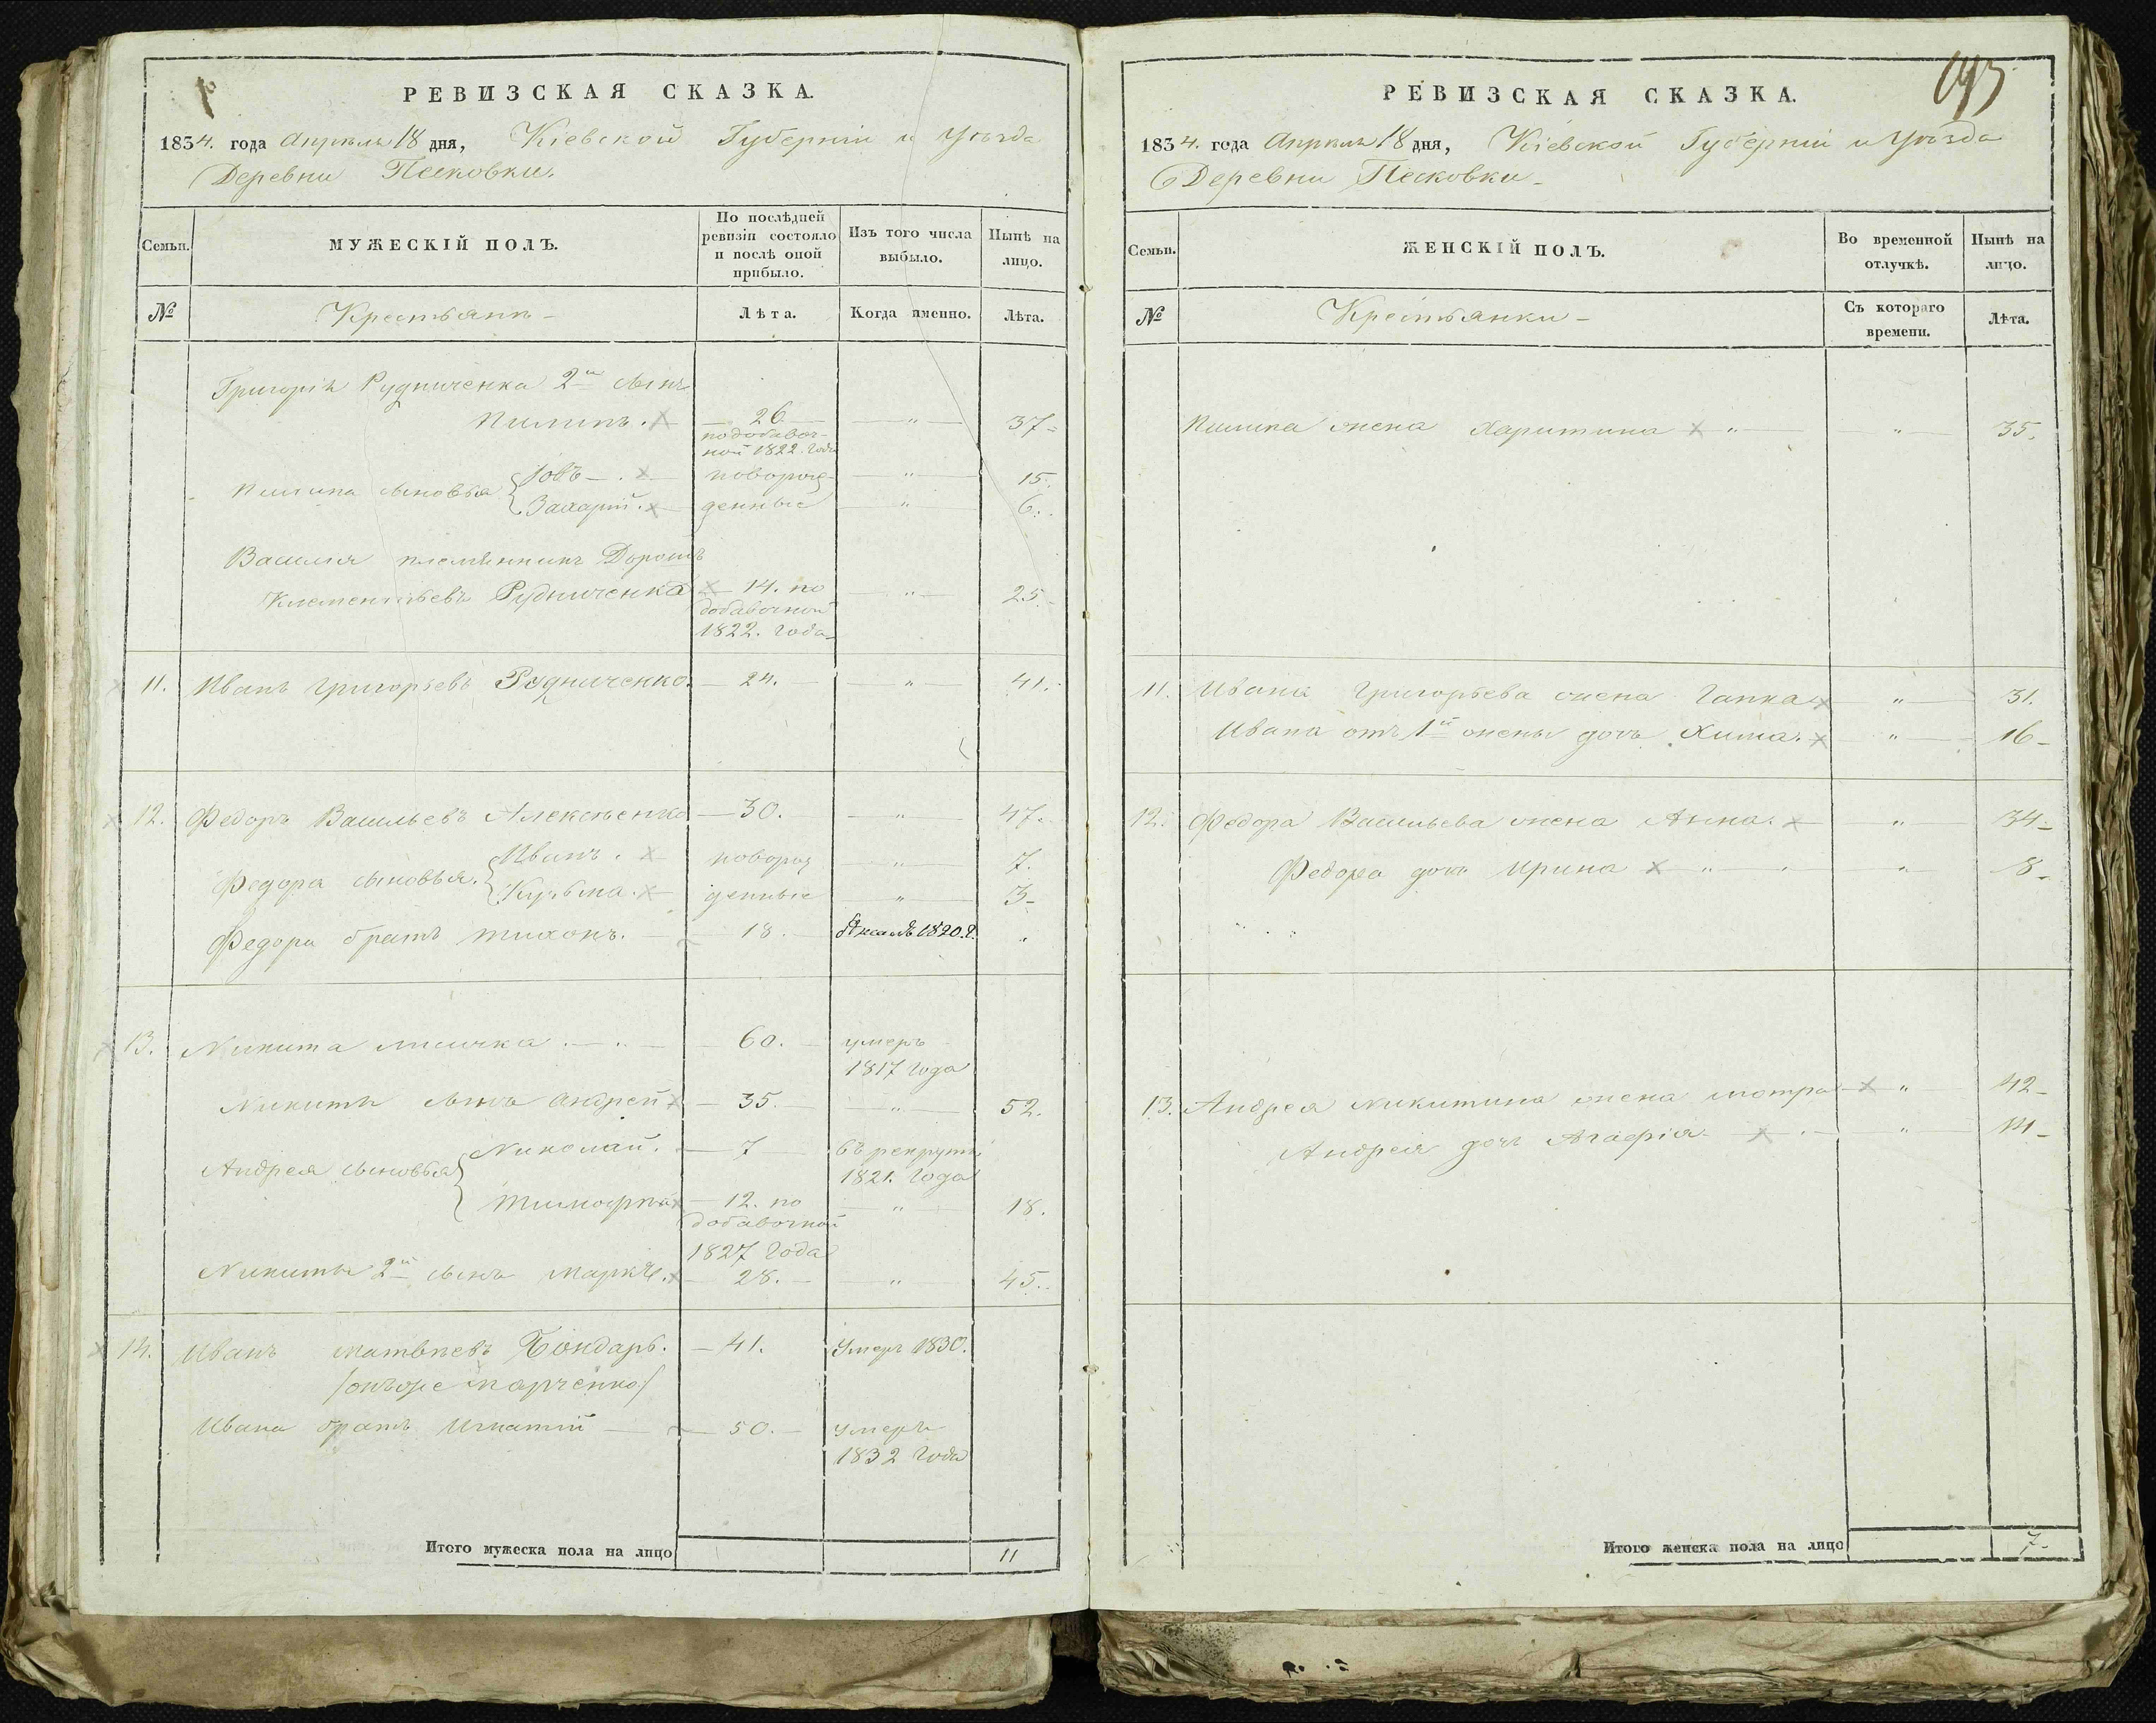 РЕВИЗСКАЯ СКАЗКА.
1834. года Апрѣля 18 дня, Кіевской Губерніи и Уѣзда
Деревни Песковки.
Семьи.
МУЖЕСКІЙ ПОЛЪ.
По послѣдней
ревизіи состояло
и послѣ оной
прибыло.
Изъ того числа
выбыло.
Нынѣ на
лицо.
№
Крестьянъ
Лѣта.
Когда именно.
Лѣта.
Григорія Рудниченка 2й сынъ
Пилипъ. 26 " 37
по добавоч-
ной 1822. года
Пилипа сыновья Іовъ новорож- " 15.
Захарій. денные " 6.
Василія племянникъ Дорошъ
Клементьевъ Рудниченка 14. по " 25
добавочной
1822. года
11. Иванъ Григорьевъ Рудниченко. 24. " 41.
12. Федоръ Васильевъ Алексѣенко 30. " 47.
Федора сыновья. Иванъ. новорож " 7.
Кузьма. денные " 3
Федора братъ Тихонъ. 18. бѣжалъ 1820. г. "
13. Никита Лисичка 60. умеръ
1817 года
Никиты сынъ Андрей 35. " 52.
Андрея сыновья Николай. 7 въ рекруты
1821. года
Тимофѣй 12. по " 18.
добавочной
1827 года
Никиты 2й сынъ Марко. 28. " 45.
14. Иванъ Матвѣевъ Бондарь. 41. Умеръ 1830.
/онъже Марченко/
Ивана братъ Игнатій 50. умеръ
1832 года
Итого мужеска пола на лицо 11
193
РЕВИЗСКАЯ СКАЗКА.
1834. года Апрѣля 18 дня, Кіевской Губерніи и Уѣзда
Деревни Песковки
Семьи.
ЖЕНСКІЙ ПОЛЪ.
Во временной
отлучкѣ.
Нынѣ на
лицо.
№
Крестьянки
Съ котораго
времени.
Лѣта.
Пилипа жена Харитина " " 35.
11. Ивана Григорьева жена Гапка " 31.
Ивана отъ 1й жены дочь Хима. " 16
12. Федора Васильева жена Анна. " 34
Федора дочь Ирина " " 8
13. Андрея Никитина жена Мотра " 42
Андрея дочь Агафія " 14
Итого женска пола на лицо 7